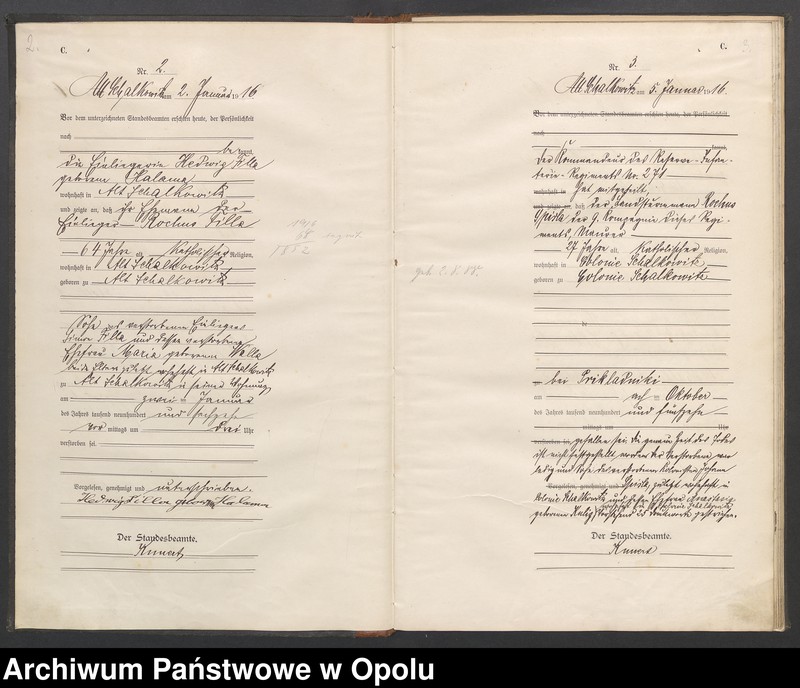 2.
C.
Nr. 2.
Alt Schalkowitz am 2. Januar 1916
Vor dem unterzeichneten Standesbeamten erschien heute, der Persönlichkeit
nach
bekannt,
die Einliegerin Hedwig Filla
geborene Kalama
wohnhaft in Alt Schalkowitz
und zeigte an, daß ihr Ehemann Der
Einlieger Rochus Filla
64 Jahre alt, Katholischer Religion,
wohnhaft in Alt Schalkowitz
geboren zu Alt Schalkowitz
Sohn des verstorbenen Einliegers
Simon Filla und dessen verstorbene
Ehefrau Maria geborenen Walla
beide Eltern zuletzt wohnhaft in Alt Schalkowitz
zu Alt Schalkowitz in seiner Wohnung
am zwei Januar
des Jahres tausend neunhundert und sechzehn
vor mittags um drei Uhr
verstorben sei.
Vorgelesen, genehmigt und unterschrieben
Hedwig Filla geborene Kalama
Der Standesbeamte.
Kunert
1916
64
1852
3.
C.
Nr. 3.
Alt Schalkowitz am 5. Januar 1916.
Vor dem unterzeichneten Standesbeamten erschien heute, der Persönlichkeit
nach
kannt,
Der Kommandeur des Reserve-Infan-
terie-Regiments Nr. 271
wohnhaft in hat mitgeteilt,
und zeigte an, daß der Landsturmmann Rochus
der 9. Kompagnie dieses Regi-
ments, Maurer
27 Jahre alt, Katholischer Religion,
wohnhaft in Colonie Schalkowitz
geboren zu Colonie Schalkowitz
geb. 2.8.88.
zu
bei Prikladniki
am acht Oktober
des Jahres tausend neunhundert und fünfzehn
mittags um Uhr
verstorben sei. gefallen sei. Die genaue Zeit des Todes
ist nicht festgestellt worden. Der Verstorbene war
ledig und Sohn des verstorbenen Kolonisten Johann
Vorgelesen, genehmigt und zuletzt wohnhaft in
Kolonie Schalkowitz und dessen Ehefrau
wohnhaft in Kolonie Schalkowitz
geborenen Vorstehend Druckworte gestrichen.
Der Standesbeamte.
Kunert
Archiwum Państwowe w Opolu